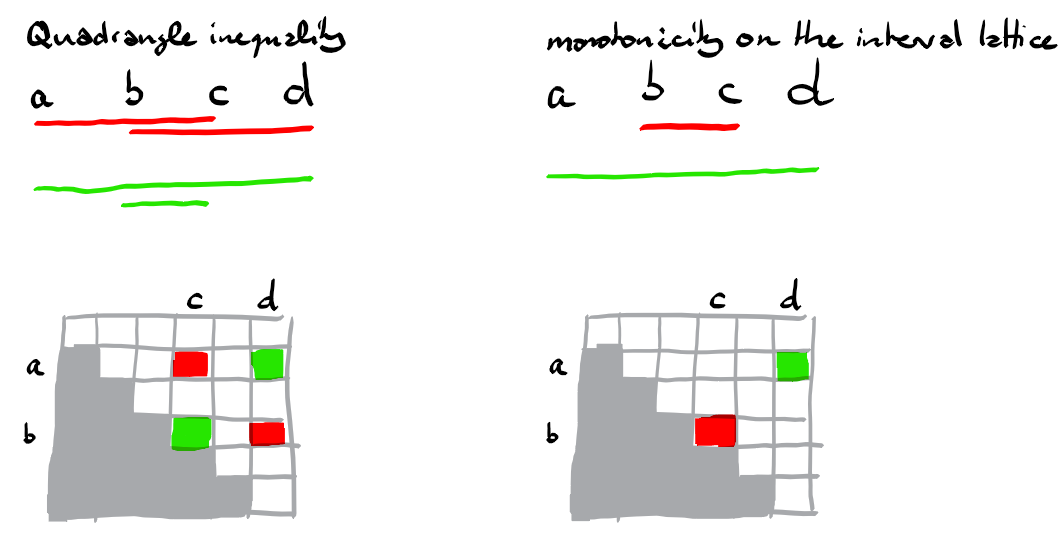 Quadrangle inequality
a b c d
c d
a
b
monotonicity on the interval lattice
a b c d
c d
a
b